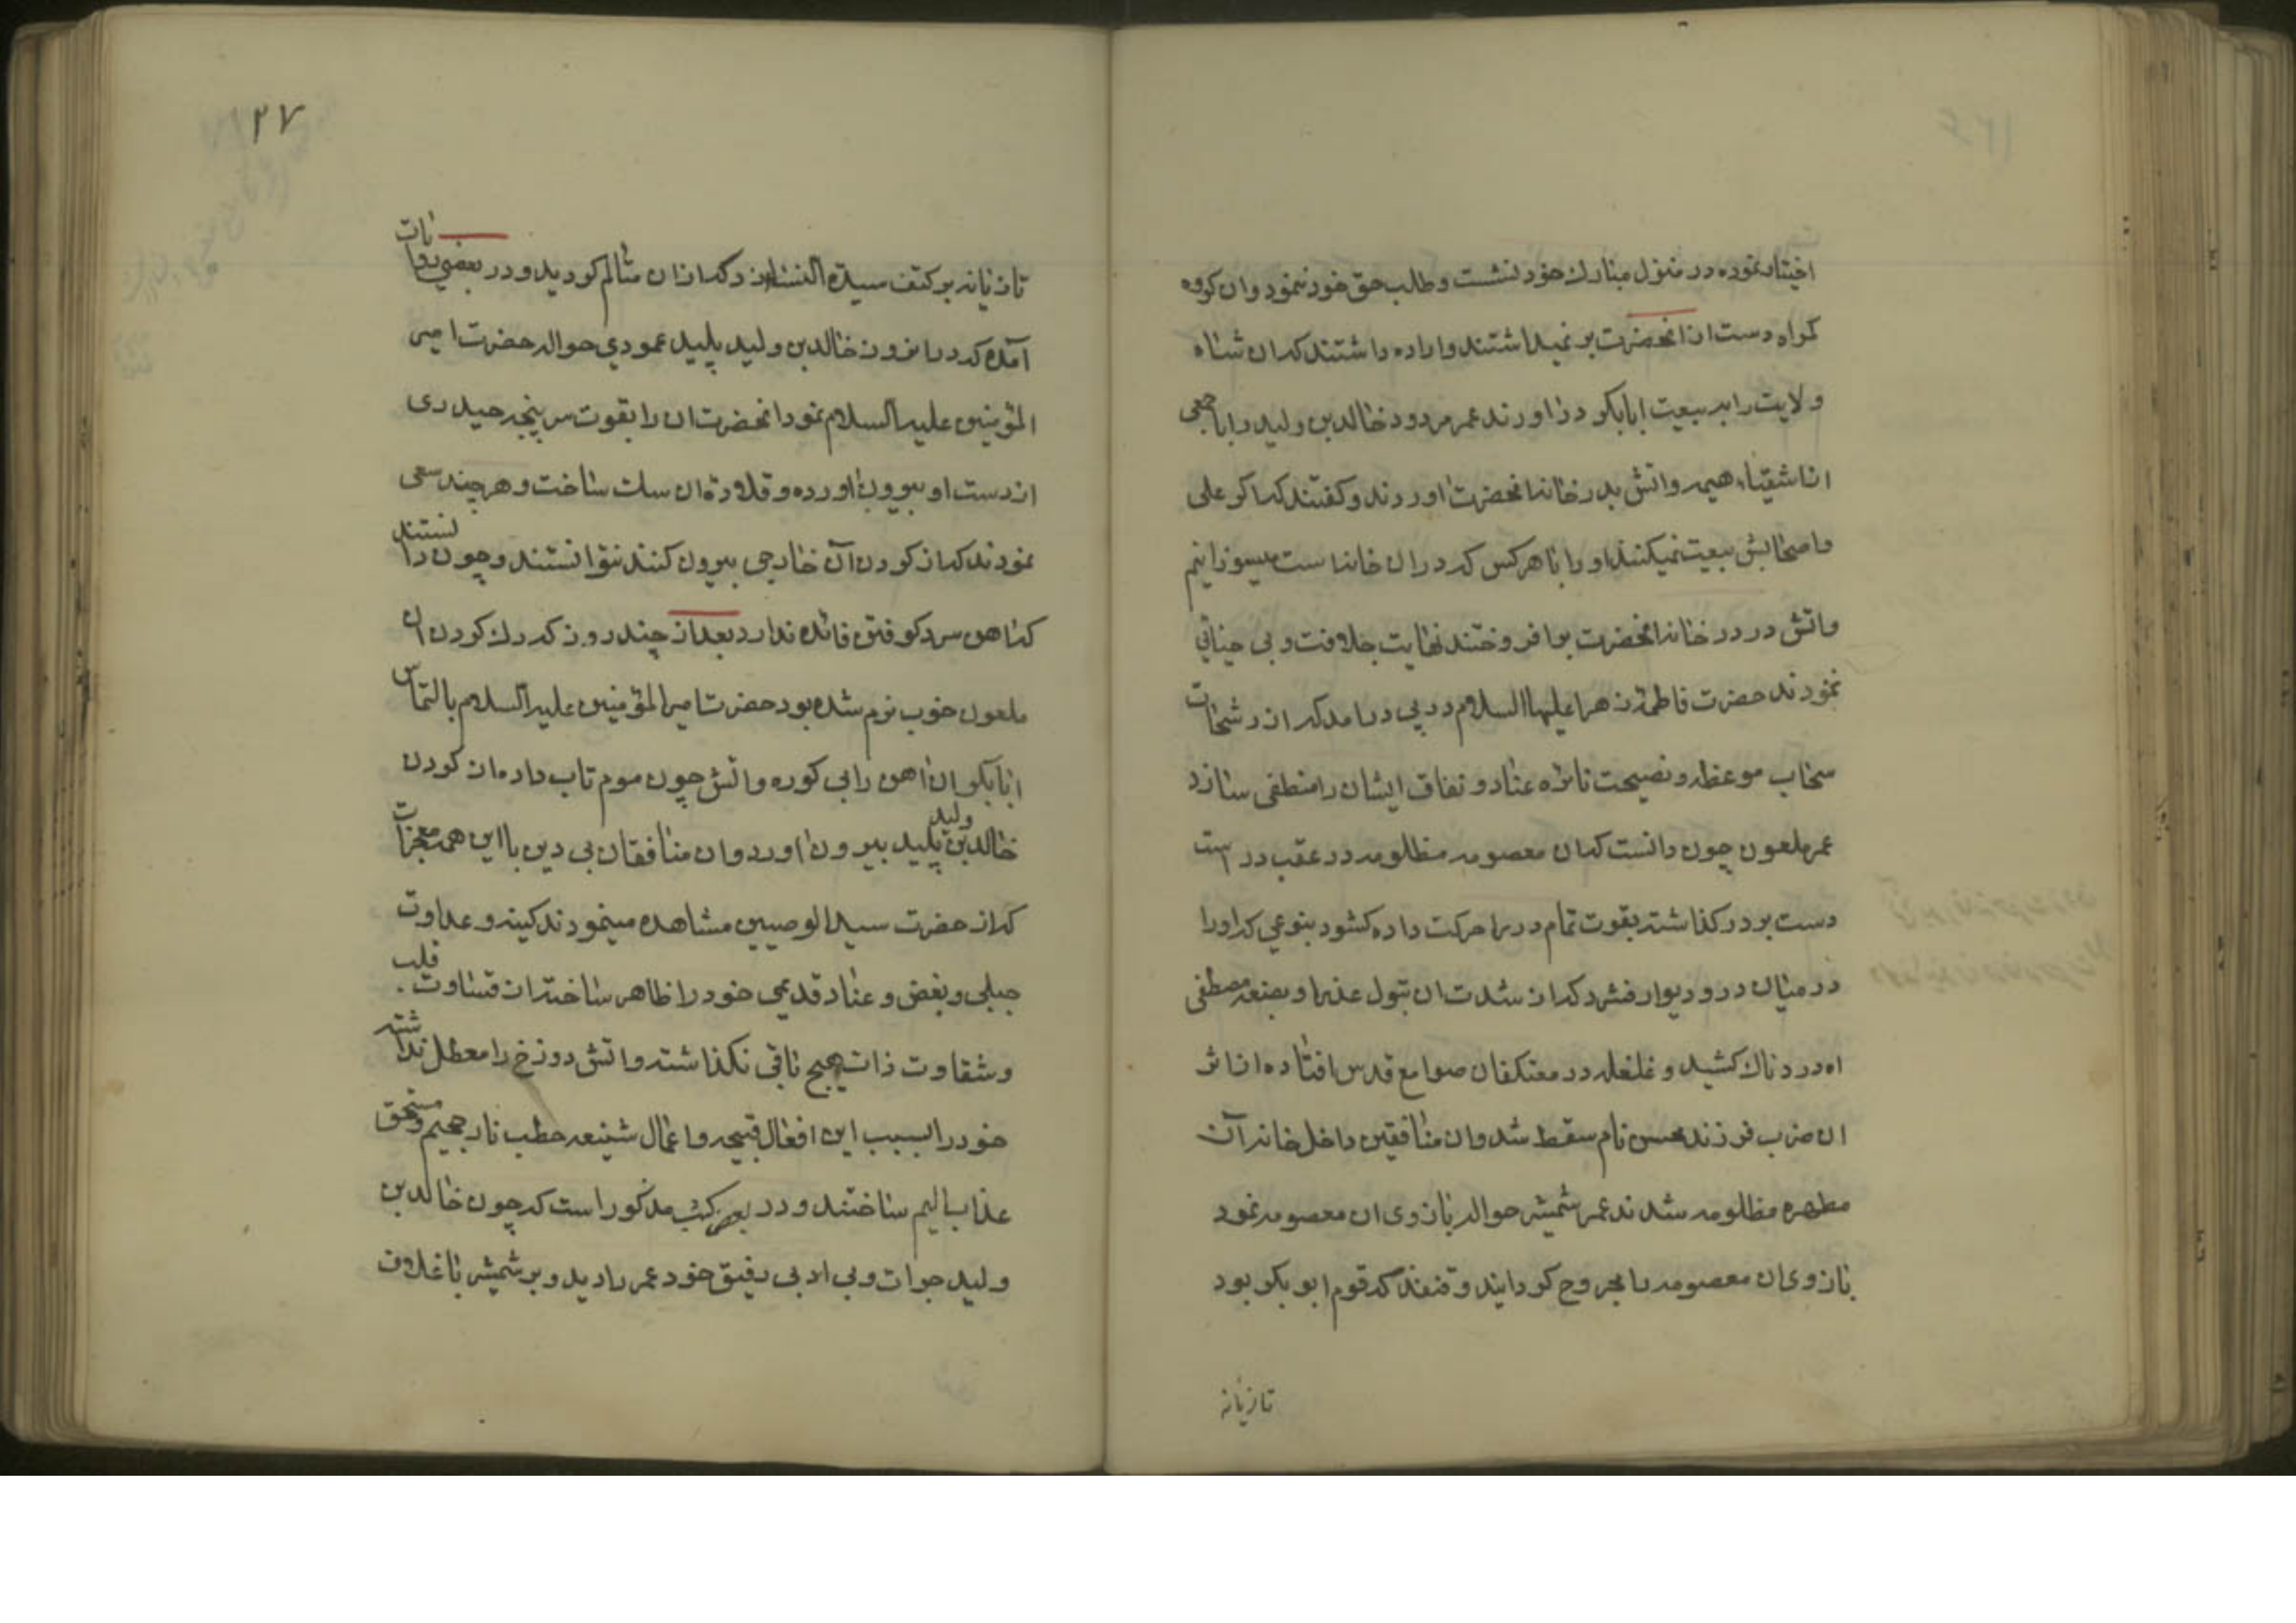 اختیار نموده در منزل مبارك خود نشست و طلب حق خود ننمود و ان کروه
کمراه دست از انحضرت بر نمیداشتند و اراده داشتند که ان شاه
ولایت را به بیعت ابابکر در اورند عمر مردود خالد بن ولید را با جمعی
از اشقیاء هیمه و اتش بدر خانه انحضرت اوردند و کفتند که اکر علی
و اصحابش بیعت نمیکنند او را با هر کس که در ان خانه است میسوزانیم
و اتش در در خانه انحضرت بر افروختند نهایت جلافت و بی حیائی
نمودند حضرت فاطمه زهرا علیها السلام در پی در امد که از رشحات
سحاب موعظه و نصیحت نائره عناد و نفاق ایشان را منطفی سازد
عمر ملعون چون دانست که ان معصومه مظلومه در عقب در است
دست بر در کذاشته بقوت تمام در را حرکت داده کشود بنوعی که او را
در میان در و دیوار فشرد که از شدت ان بتول عذرا و بضعه مصطفی
اه دردناك کشید و غلغله در معتکفان صوامع قدس افتاده از اثر
ان ضرب فرزند محسن نام سقط شد و ان منافقین داخل خانه آن
مطهره مظلومه شدند عمر شمشیر حواله بازوی ان معصومه نمود
بازوی ان معصومه را مجروح کردایند و قنفذ که قوم ابو بکر بود
تازیانه
۱۲۷
تازیانه بر کتف سیدة النساء زد که از ان متالم کردید و در بعضی روایات
آمده که در انروز خالد بن ولید پلید عمودی حواله حضرت امیر
المؤمنین علیه السلام نمود انحضرت ان را بقوت سر پنجه حیدری
از دست او بیرون اورده و قلاده ان سك ساخت و هر چند سعی
نمودند که از کردن آن خارجی بیرون کنند نتوانستند و چون دانستند
که اهن سرد کوفتن فائده ندارد بعد از چند روز که رك کردن ان
ملعون خوب نرم شده بود حضرت امیر المؤمنین علیه السلام بالتماس
ابابکر ان اهن را بی کوره و اتش چون موم تاب داده از کردن
خالد بن ولید پلید بیرون اورد و ان منافقان بی دین با این همه معجزات
که از حضرت سید الوصیین مشاهده مینمودند کینه و عداوت
جبلی و بغض و عناد قدیمی خود را ظاهر ساخته از قساوت قلب
و شقاوت ذات هیچ باقی نکذاشته و اتش دوزخ را معطل نداشته
خود را بسبب این افعال قبیحه و اعمال شنیعه حطب نار جحیم و مستحق
عذاب الیم ساختند و در بعض کتب مذکور است که چون خالد بن
ولید جرات و بی ادبی رفیق خود عمر را دید و بر شمشیر با غلاف